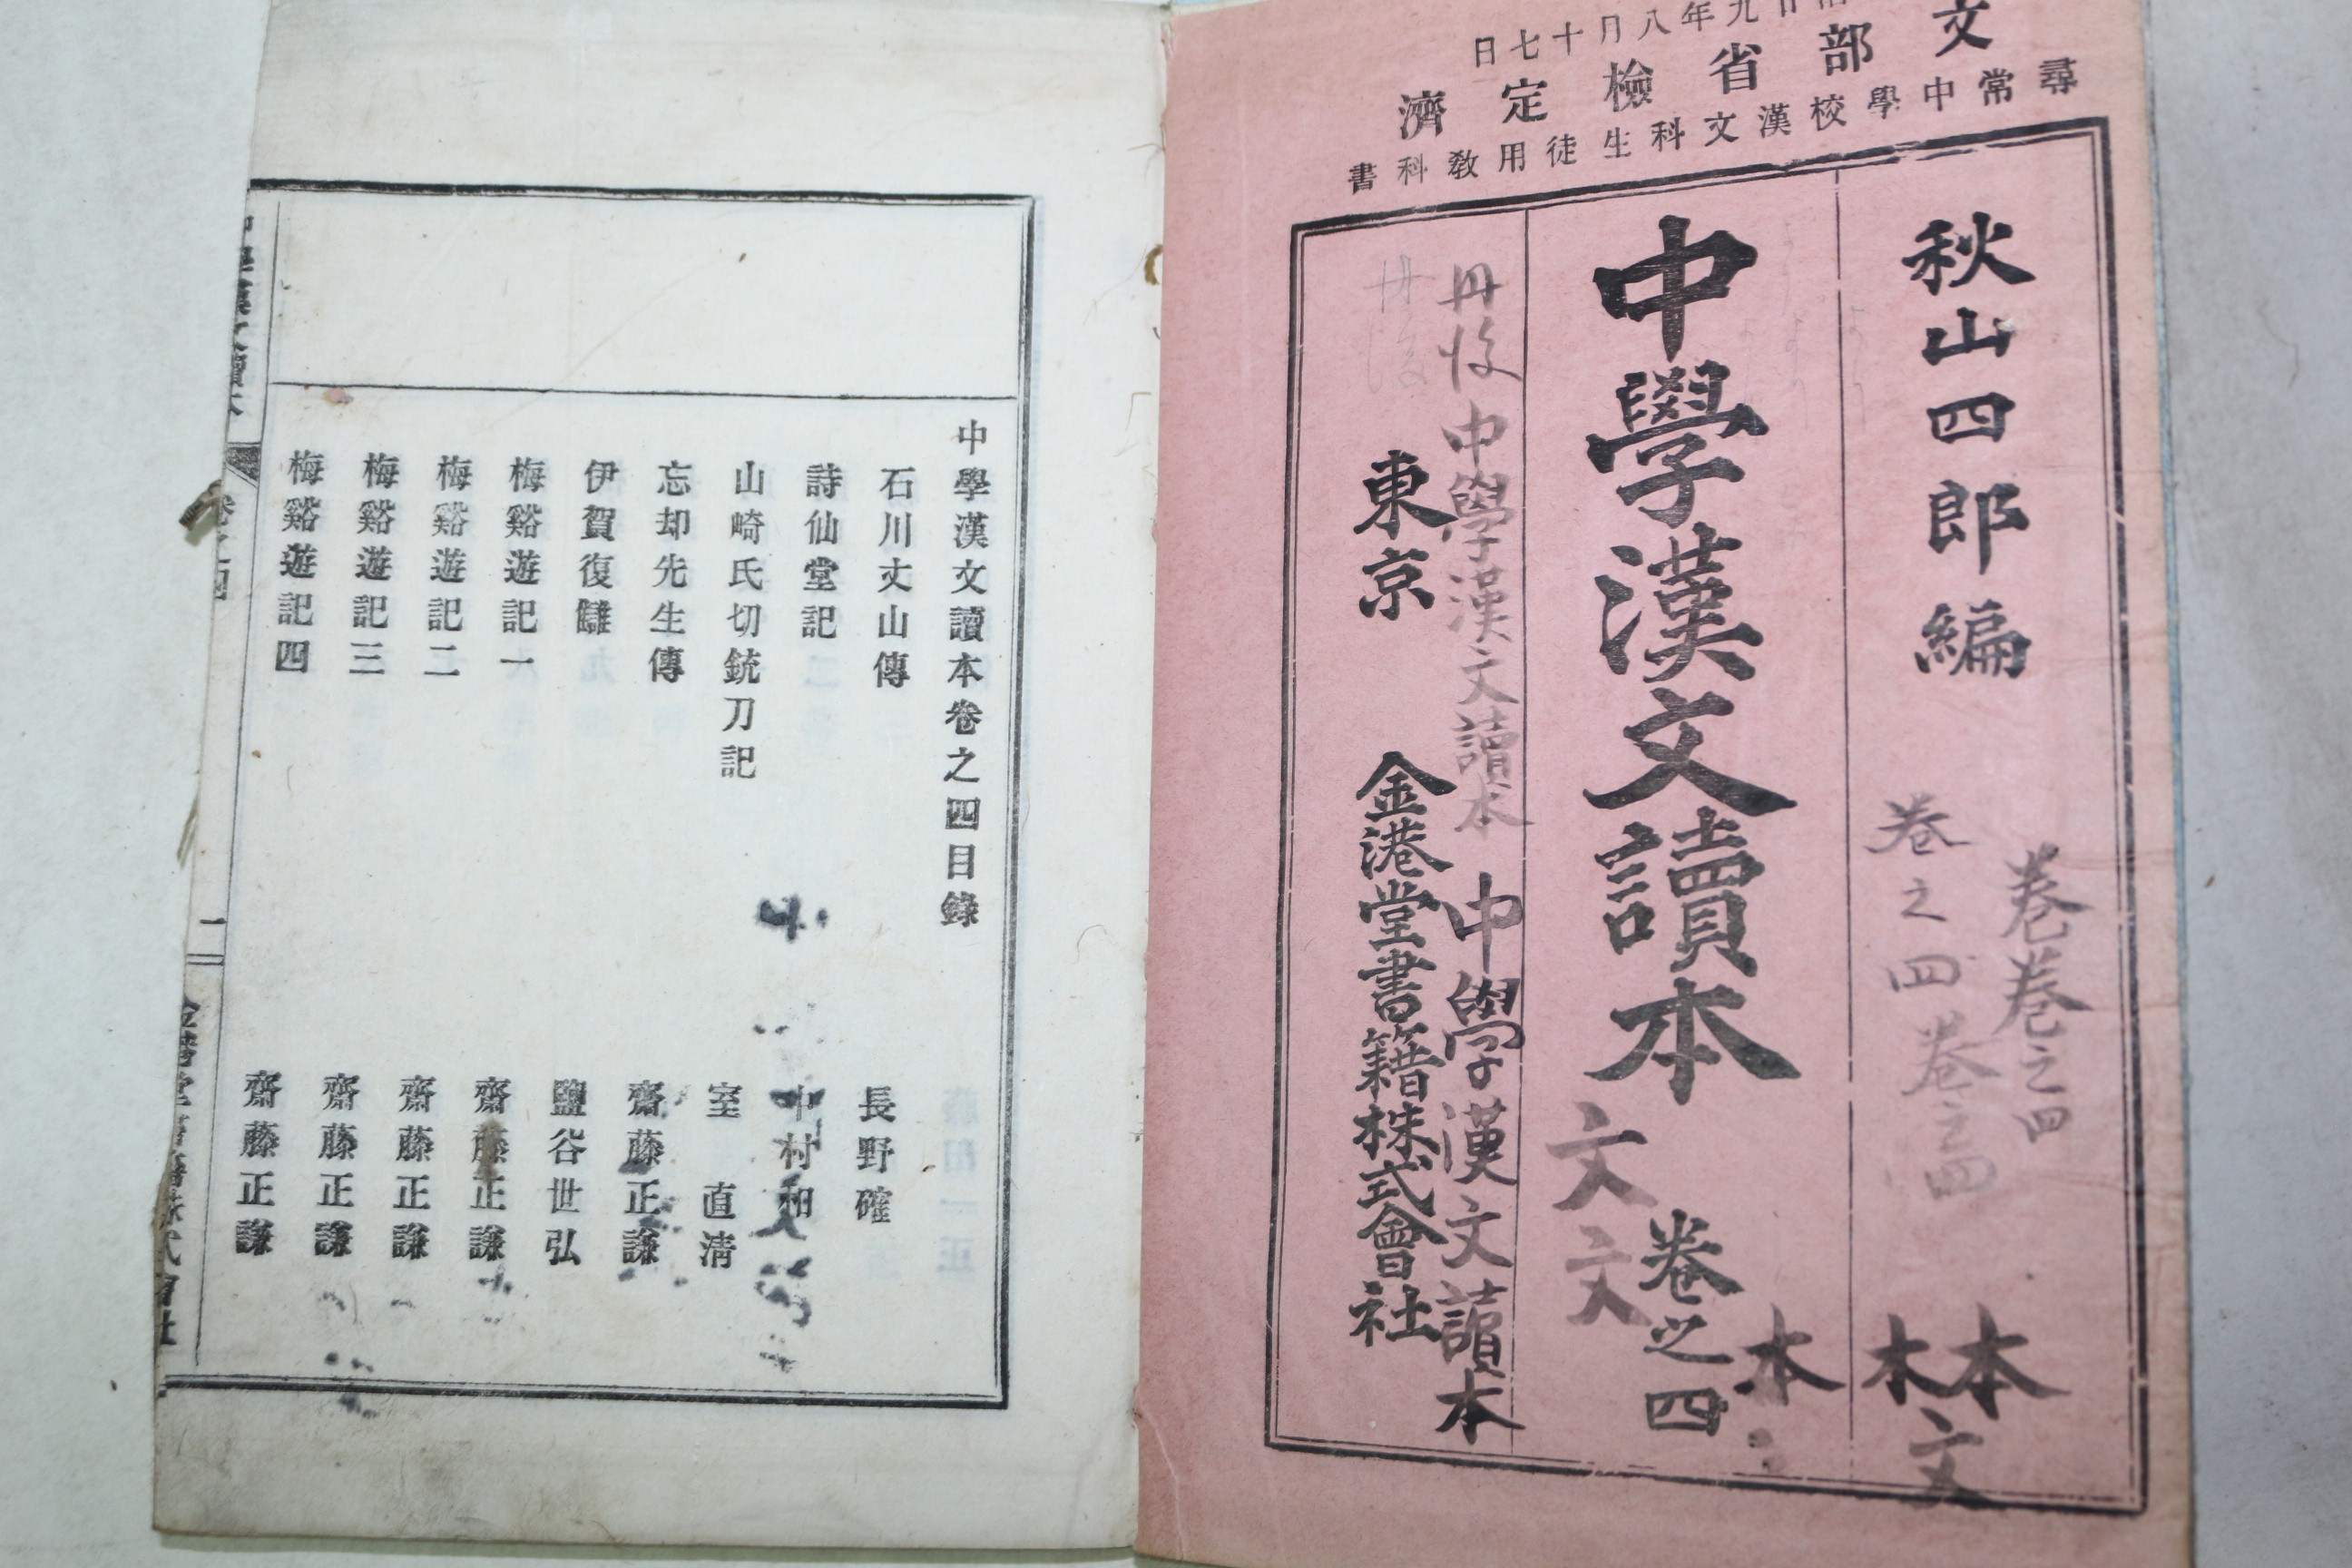 九年八月十七日
文部省檢定濟
尋常中學校漢文科生徒用教科書
秋山四郎編
卷之四
卷之四
卷卷之四
本
本
文
中學漢文讀本
卷之四
本
文
文
丹後
中學漢文讀本
中學漢文讀本
丹後
東京
金港堂書籍株式會社
中學漢文讀本卷之四目錄
石川丈山傳 長野確
詩仙堂記 中村和
山崎氏切銃刀記 室直清
忘却先生傳 齋藤正謙
伊賀復讎 鹽谷世弘
梅谿遊記一 齋藤正謙
梅谿遊記二 齋藤正謙
梅谿遊記三 齋藤正謙
梅谿遊記四 齋藤正謙
中學漢文讀本
卷之四
一
金港堂書籍株式會社